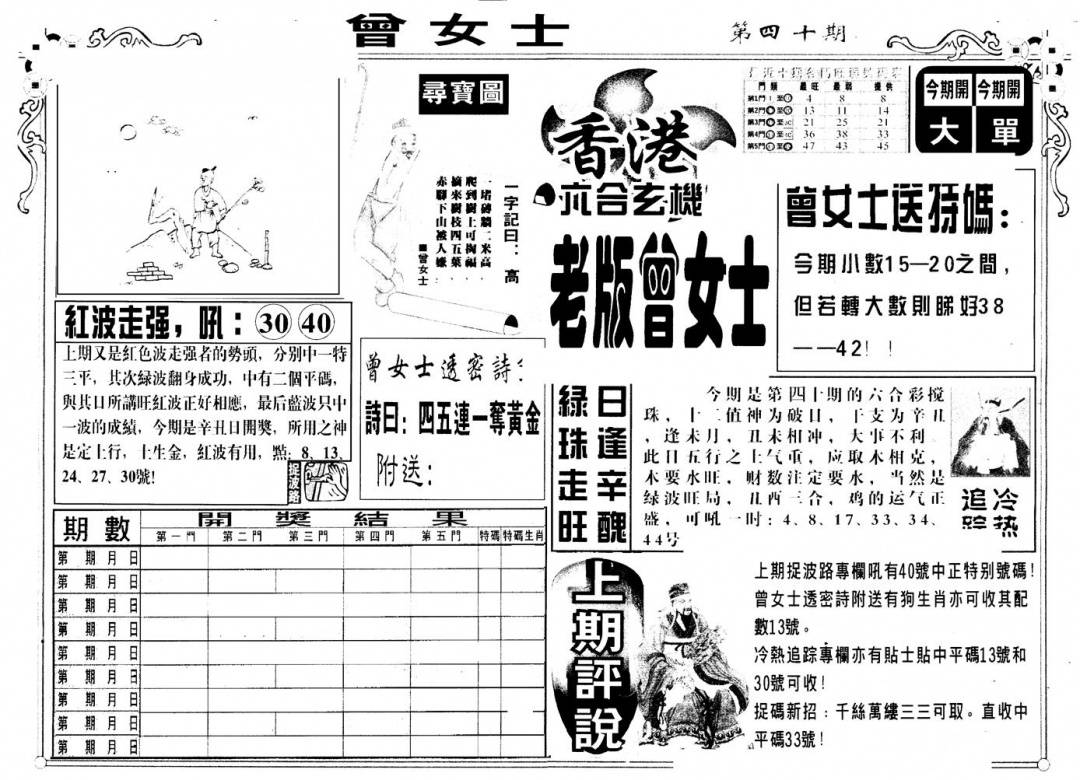 曾女士
第四十期
尋寶圖
一字記曰：高
一堵磚牆二米高．
爬到樹上可掏福．
摘來樹枝四五葉．
赤腳下山被人嫌．
■曾女士
香港
六合玄機
老版曾女士
門類 最旺 最弱 提供
第1門 4 8 8
第2門 13 11 14
第3門 21 25 21
第4門 36 38 33
第5門 47 43 45
今期開 今期開
大 單
曾女士送特碼：
今期小數15—20之間，
但若轉大數則睇好38
——42！！
紅波走强，吼：30 40
上期又是紅色波走强者的勢頭，分别中一特
三平，其次綠波翻身成功，中有二個平碼，
與其日所講旺紅波正好相應，最后藍波只中
一波的成績，今期是辛丑日開獎，所用之神
是定土行，土生金，紅波有用，點：8、13、
24、27、30號!
捉波路
曾女士透密詩：
詩曰：四五連一奪黃金
附送：
綠珠走旺
日逢辛醜
今期是第四十期的六合彩搅
珠，十二值神为破日，干支为辛丑
，逢未月，丑未相冲，大事不利．
此日五行之土气重，应取木相克，
木要水旺，财数注定要水，当然是
绿波旺局，丑酉三合，鸡的运气正
盛，可吼一时：4、8、17、33、34、
44号
冷热
追踪
期數 開獎結果
第一門 第二門 第三門 第四門 第五門 特碼 特碼生肖
第 期 月 日
第 期 月 日
第 期 月 日
第 期 月 日
第 期 月 日
第 期 月 日
第 期 月 日
第 期 月 日
第 期 月 日
上期評說
上期捉波路專欄吼有40號中正特别號碼!
曾女士透密詩附送有狗生肖亦可收其配
數13號。
冷熱追踪專欄亦有貼士貼中平碼13號和
30號可收!
捉碼新招：千絲萬縷三三可取。直收中
平碼33號!